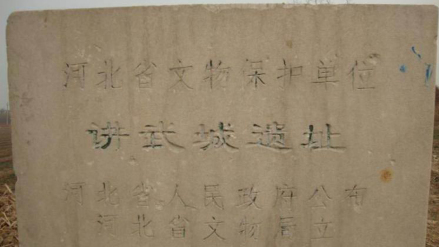 河北省文物保护单位
讲武城遗址
河北省人民政府公布
河北省文物局立